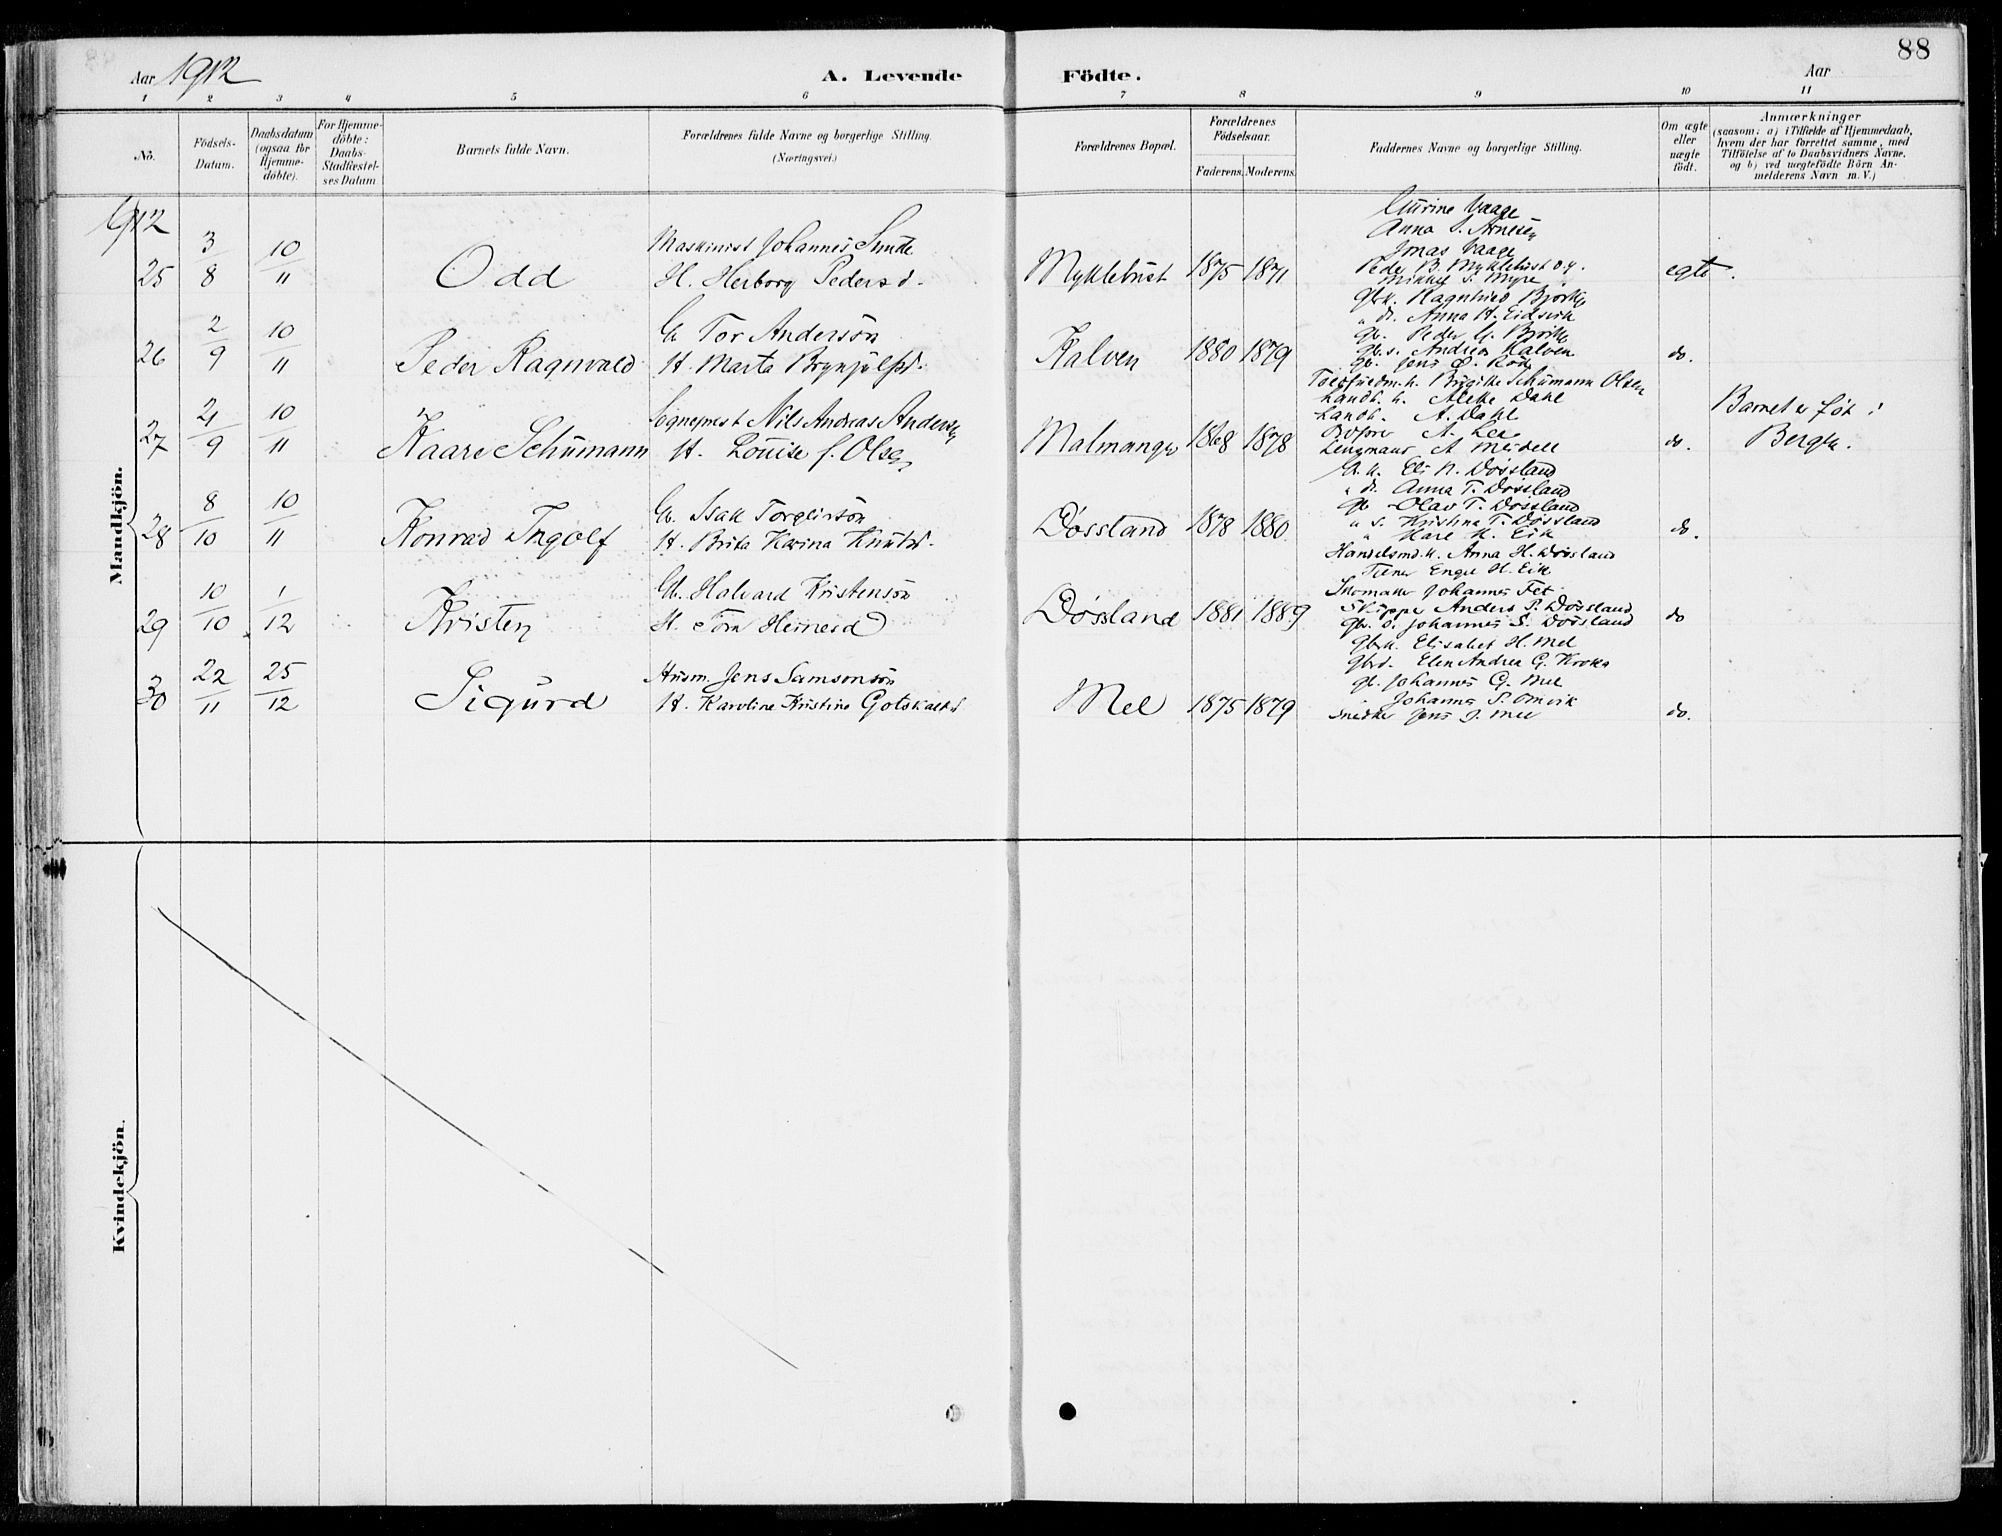 88
Aar 1912
A. Levende Födte.
Aar
1 2 3 4 5 6 7 8 9 10 11
No.
Födsels-Datum.
Daabsdatum (ogsaa for Hjemme-döbte).
For Hjemme-döbte: Daabs-Stadfæstel-ses Datum
Barnets fulde Navn.
Forældrenes fulde Navne og borgerlige Stilling.
(Næringsvei.)
Forældrenes Bopæl.
Forældrenes Födselsaar.
Faderens. Moderens.
Faddernes Navne og borgerlige Stilling.
Om ægte eller uægte födt.
Anmærkninger
(saasom: a) i Tilfælde af Hjemmedaab,
hvem der har forrettet samme, med
Tilföielse af to Daabsvidners Navne,
og b) ved uægtefödte Börn An-
melderens Navn m. V.)
Mandkjön.
1912
25 3/8 10/11 Odd
Maskinist Johannes Sunde
H. Herborg Pedersd.
Myklebust 1875 1871
Vaage
Anna S. Arnesen
Jonas Vaage
Peder B. Myklebust o.y.
Mikkel S. Myre
egte.
26 2/9 10/11 Peder Ragnvald
Gb. Tor Andersön
H. Marta Brynjulfsd.
Kalven 1880 1879
Gbk. Ragnhild Björke
" d. Anna H. Eidsvik
Gb. Peder G. Björke
Gb.s. Andreas Kalven
Gb. Jens
do.
27 21/9 10/11 Kaare Schümann
Sogneprest Nils Andreas Andersen
H. Louise f. Olsen
Malmanger 1868 1878
Birgitte Schümann Olsen
Landh. h. Dahl
Landh. A. Dahl
A. Lea
Lensmand A. Meidell
do.
Barnet er föt i
Bergen.
28 8/10 10/11 Konrad Ingolf
Gb. Isak Torgeirsön
H. Brita Karina Knutsd.
Døssland 1878 1880
Gb. k. Eli N. Døssland
" d. Anna T. Døssland
Gb Olav T. Døssland
" s. Kristina T. Døssland
" H. Eik
do.
29 10/10 1/12 Kristen
Gb. Halvard Kristensön
H. Tora Heinesd
Døssland 1881 1889
Handelsmd.k. Anna H. Døssland
Tjener Engel H. Eik
Skomaker Johannes Fet
Skipper Anders P. Døssland
Gb. s. Johannes S. Døssland
do
30 22/11 25/12 Sigurd
Husm. Jens Samsonsön
H. Karoline Kristine Gotskalksd
Mel 1875 1879
Gbk. Elisabet H. Mel
Gbd. Elen Andrea G. Kroka
Gb. Johannes G. Mel
Johannes S. Omvik
Snedker Jens J. Mel
do.
Kvindekjön.